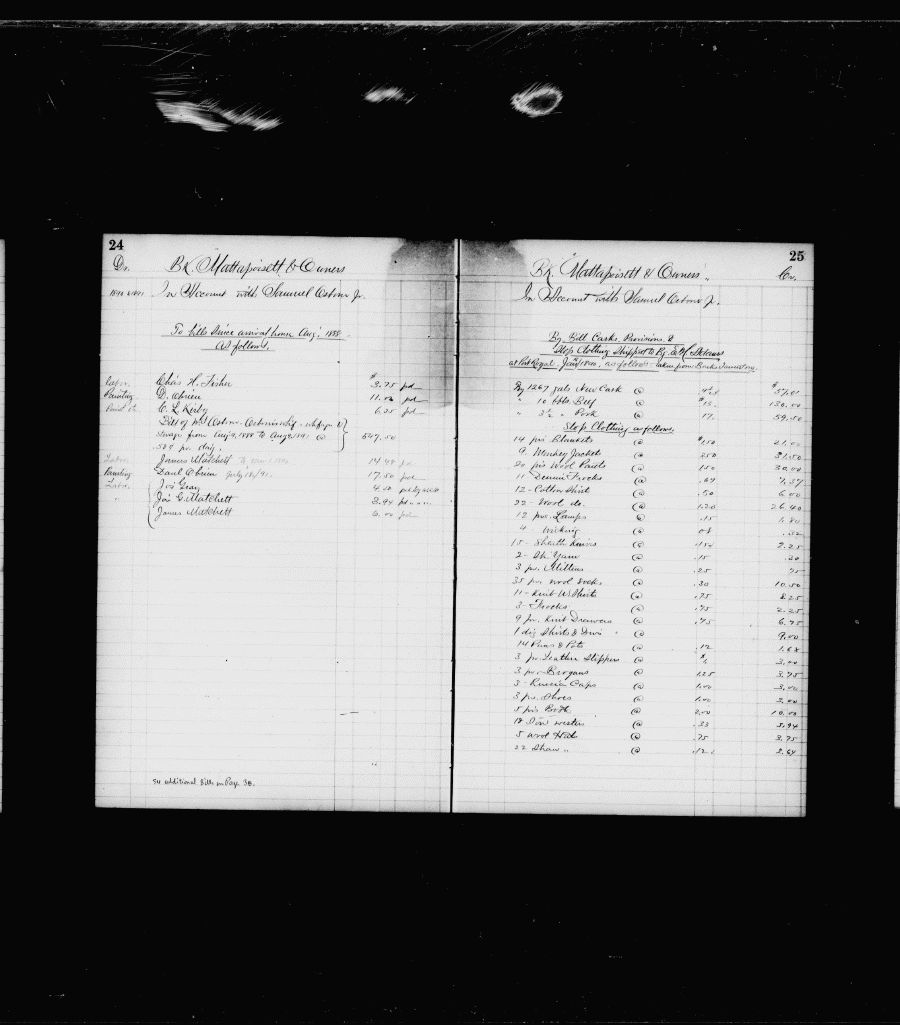 24
Dr. BK. Mattapoisett & Owners
In Account with Samuel Osborn Jr.
To bills since arrival home Aug. 1888
As follows.
Chas H. Fisher $3.75 pd
Painting D. Obrien 11. pd
C. L. Kirby 6.25 pd
Bill of
storage from Aug 9, 1888 to Aug 1891 @ 547.50
50 ¢ pr. day.
Labor James Matchett 14.
Painting Danl Obrien July 18/91. 17.50 pd
Labor Jos Gray 4.50
" Jos G. Matchett 3.94 pd
James Matchett 6.00 pd
See additional bills on Page 38.
25
BK. Mattapoisett & Owners " Cr.
In Account with Samuel Osborn Jr.
By Bill Casks. Provisions. &
Slop Clothing Shipped to Bg. A. H.
at Port Royal. as follows. taken from
By 1267 gals New Cask @
" 10 bbls. Beef @ 13. 130.00
" 3½ " Pork @ 17. 59.50
Slop Clothing as follows.
14 prs Blankets @ $1.50 21.00
9. Monkey Jackets @ 3.50 31.50
20 prs Wool Pants @ 1.50 30.00
11 Denim Frocks @ .67 7.37
12 - Cotton Shirts @ .50 6.00
22 - Wool do. @ 1.20 26.40
12 prs. Lamps @ .15 1.80
4 " Wicking @ .08 .32
15 - Sheath Knives @ .15 2.25
2 - Yarn @ .15 .30
3 prs. Mittens @ .25 .75
35 prs. Wool Socks @ .30 10.50
11 - Knit U. Shirts @ .75 8.25
3 - Frocks @ .75 2.25
9 pr. Knit Drawers @ .75 6.75
1 doz Shirts & Drws @ 9.00
14 Pans & Pots @ .12 1.68
3 pr Leather Slippers @ $1. 3.00
3 prs Brogans @ 1.25 3.75
3 - Russia Caps @ 1.00 3.00
3 prs. Shoes @ 1.00 3.00
5 prs Boots @ 2.00 10.00
18 Sou westers @ .33 5.94
5 Wool Hats @ .75 3.75
22 Straw " @ .12 2.64